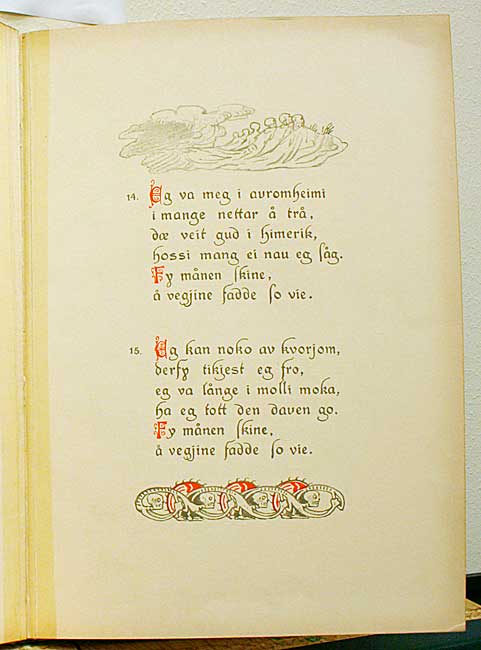 14. Eg va meg i auromheimi
i mange nettar å trå,
dæ veit gud i himerik,
hossi mang ei nau eg såg.
Fy månen skine,
å vegjine fadde so vie.
15. Eg kan noko av kvorjom,
derfy tikjest eg fro,
eg va långe i molli moka,
ha eg tott den dauen go.
Fy månen skine,
å vegjine fadde so vie.